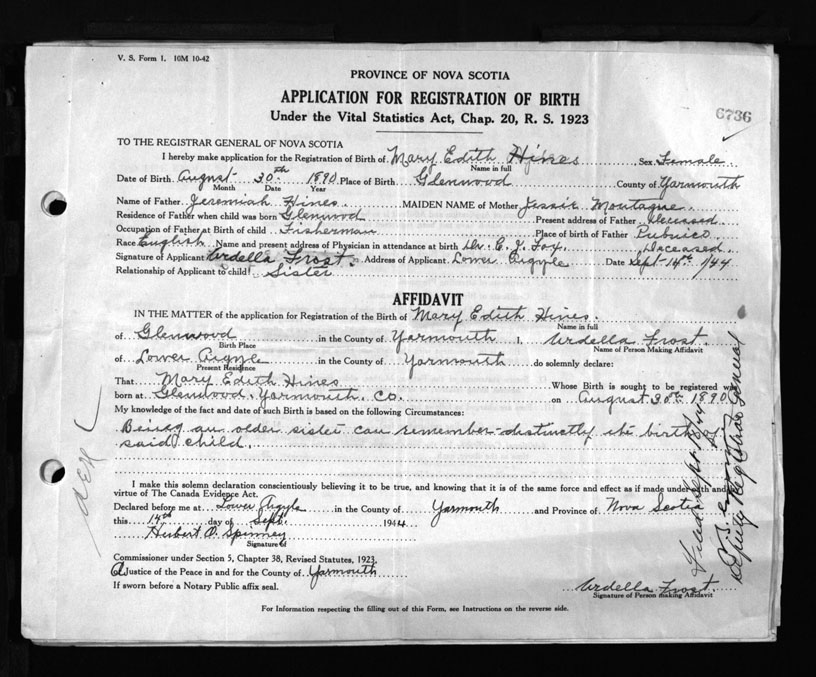 V. S. Form 1. 10M 10-42
PROVINCE OF NOVA SCOTIA
APPLICATION FOR REGISTRATION OF BIRTH
Under the Vital Statistics Act, Chap. 20, R. S. 1923
6736
TO THE REGISTRAR GENERAL OF NOVA SCOTIA
I hereby make application for the Registration of Birth of Mary Edith Hines, Sex Female
Name in full
Date of Birth August 30th 1890 Place of Birth Glenwood County of Yarmouth
Month Date Year
Name of Father Jeremiah Hines. MAIDEN NAME of Mother Jessie Montague
Residence of Father when child was born Glenwood Present address of Father Deceased
Occupation of Father at Birth of child Fisherman Place of birth of Father Pubnico
Race English Name and present address of Physician in attendance at birth Dr. C. J. Fox. Deceased
Signature of Applicant Ardella Frost. Address of Applicant Lower Argyle Date Sept 14th 1944
Relationship of Applicant to child Sister
AFFIDAVIT
IN THE MATTER of the application for Registration of the Birth of Mary Edith Hines.
Name in full
of Glenwood in the County of Yarmouth I, Ardella Frost.
Birth Place Name of Person Making Affidavit
of Lower Argyle in the County of Yarmouth do solemnly declare:
Present Residence
That Mary Edith Hines Whose Birth is sought to be registered was
born at Glenwood Yarmouth Co. on August 30th 1890
My knowledge of the fact and date of such Birth is based on the following Circumstances:
Being an older sister can remember distinctly the birth of
said child.
I make this solemn declaration conscientiously believing it to be true, and knowing that it is of the same force and effect as if made under oath and
virtue of The Canada Evidence Act.
Declared before me at Lower Argyle in the County of Yarmouth and Province of Nova Scotia
this 14th day of Sept. 1944
Hubert A. Spinney
Signature of
Commissioner under Section 5, Chapter 38, Revised Statutes, 1923,
A Justice of the Peace in and for the County of Yarmouth
If sworn before a Notary Public affix seal.
Ardella Frost.
Signature of Person making Affidavit
For Information respecting the filling out of this Form, see Instructions on the reverse side.
Deputy Registrar General